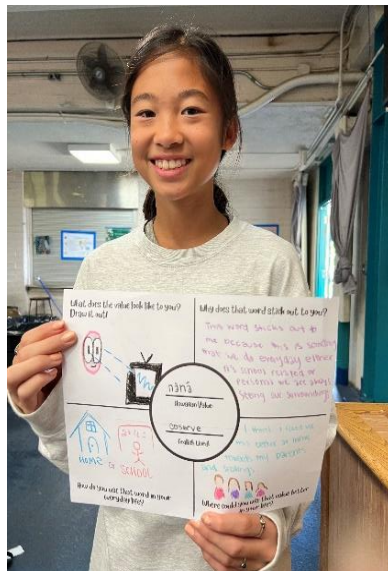 What does the value look like to you?
Draw it out!
Why does that word stick out to you?
This word sticks out to
me because this is something
that we do everyday either
it's school related or
personal we are always
seeing our surroundings.
nānā
Hawaiian Value
observe
English Word
HOME & SCHOOL
How do you use that word in your
everyday life?
I think I could use
this value in
my parents
and siblings
Where could you use that value better
in your life?